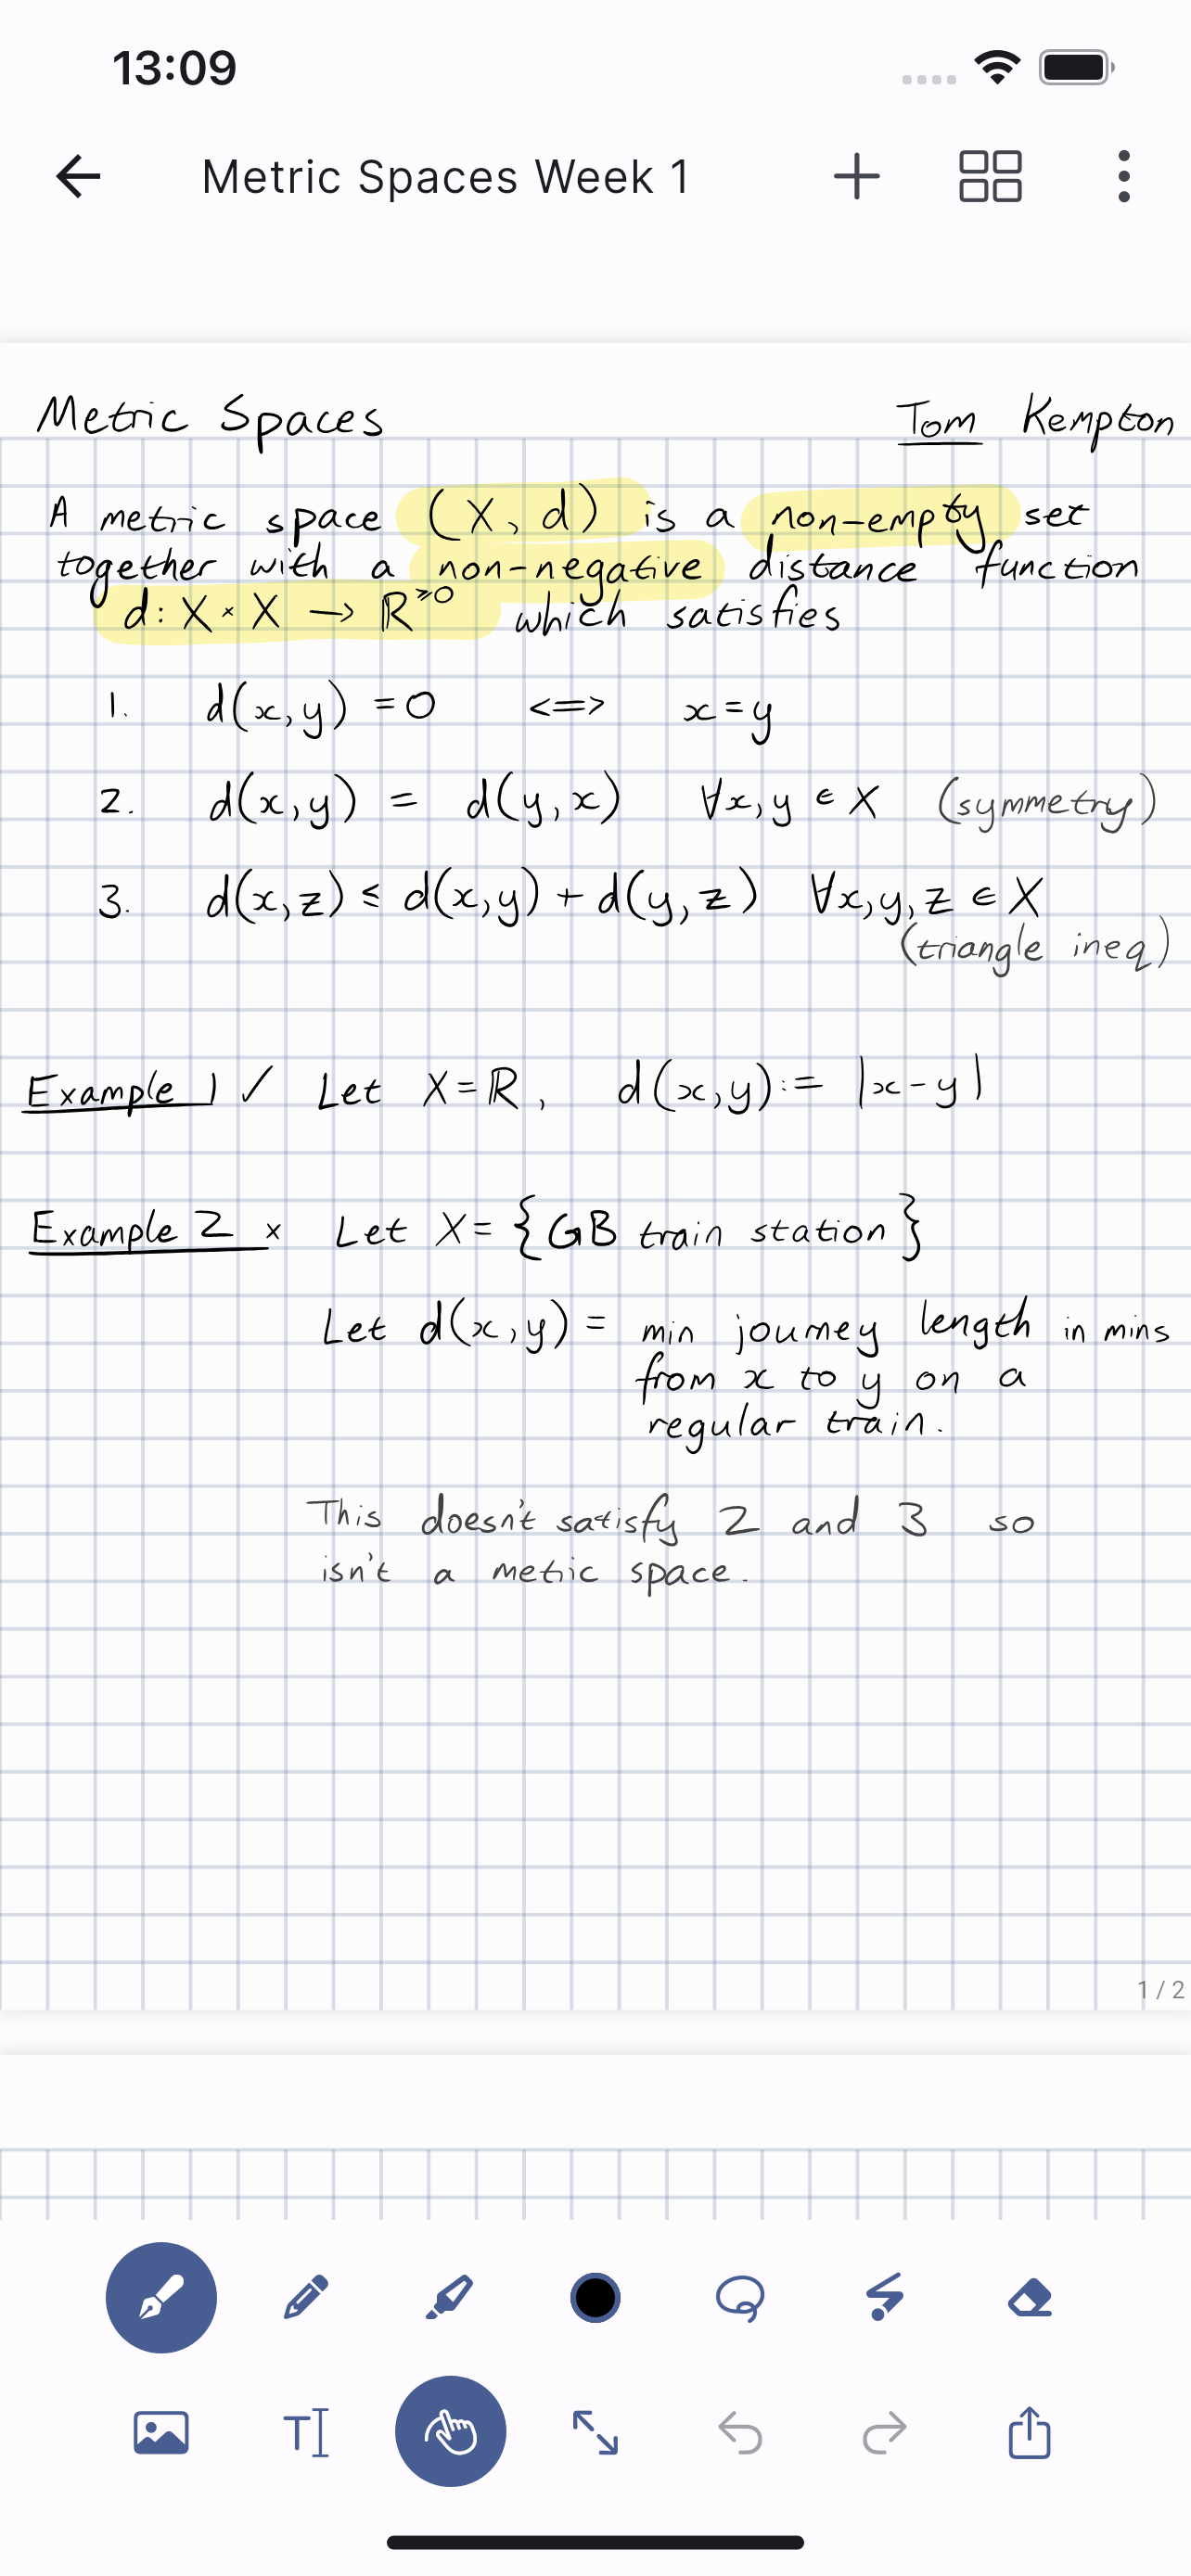 13:09
Metric Spaces Week 1
Metric Spaces Tom Kempton
A metric space (X, d) is a non-empty set
together with a non-negative distance function
d: X × X → ℝ^≥0 which satisfies
1. d(x,y) = 0 <=> x = y
2. d(x,y) = d(y,x) ∀x,y ∈ X (symmetry)
3. d(x,z) ≤ d(x,y) + d(y,z) ∀x,y,z ∈ X
(triangle ineq)
Example 1 ✓ Let X = ℝ, d(x,y) := |x-y|
Example 2 × Let X = {GB train station}
Let d(x,y) = min journey length in mins
from x to y on a
regular train.
This doesn't satisfy 2 and 3 so
isn't a metric space.
1 / 2
T